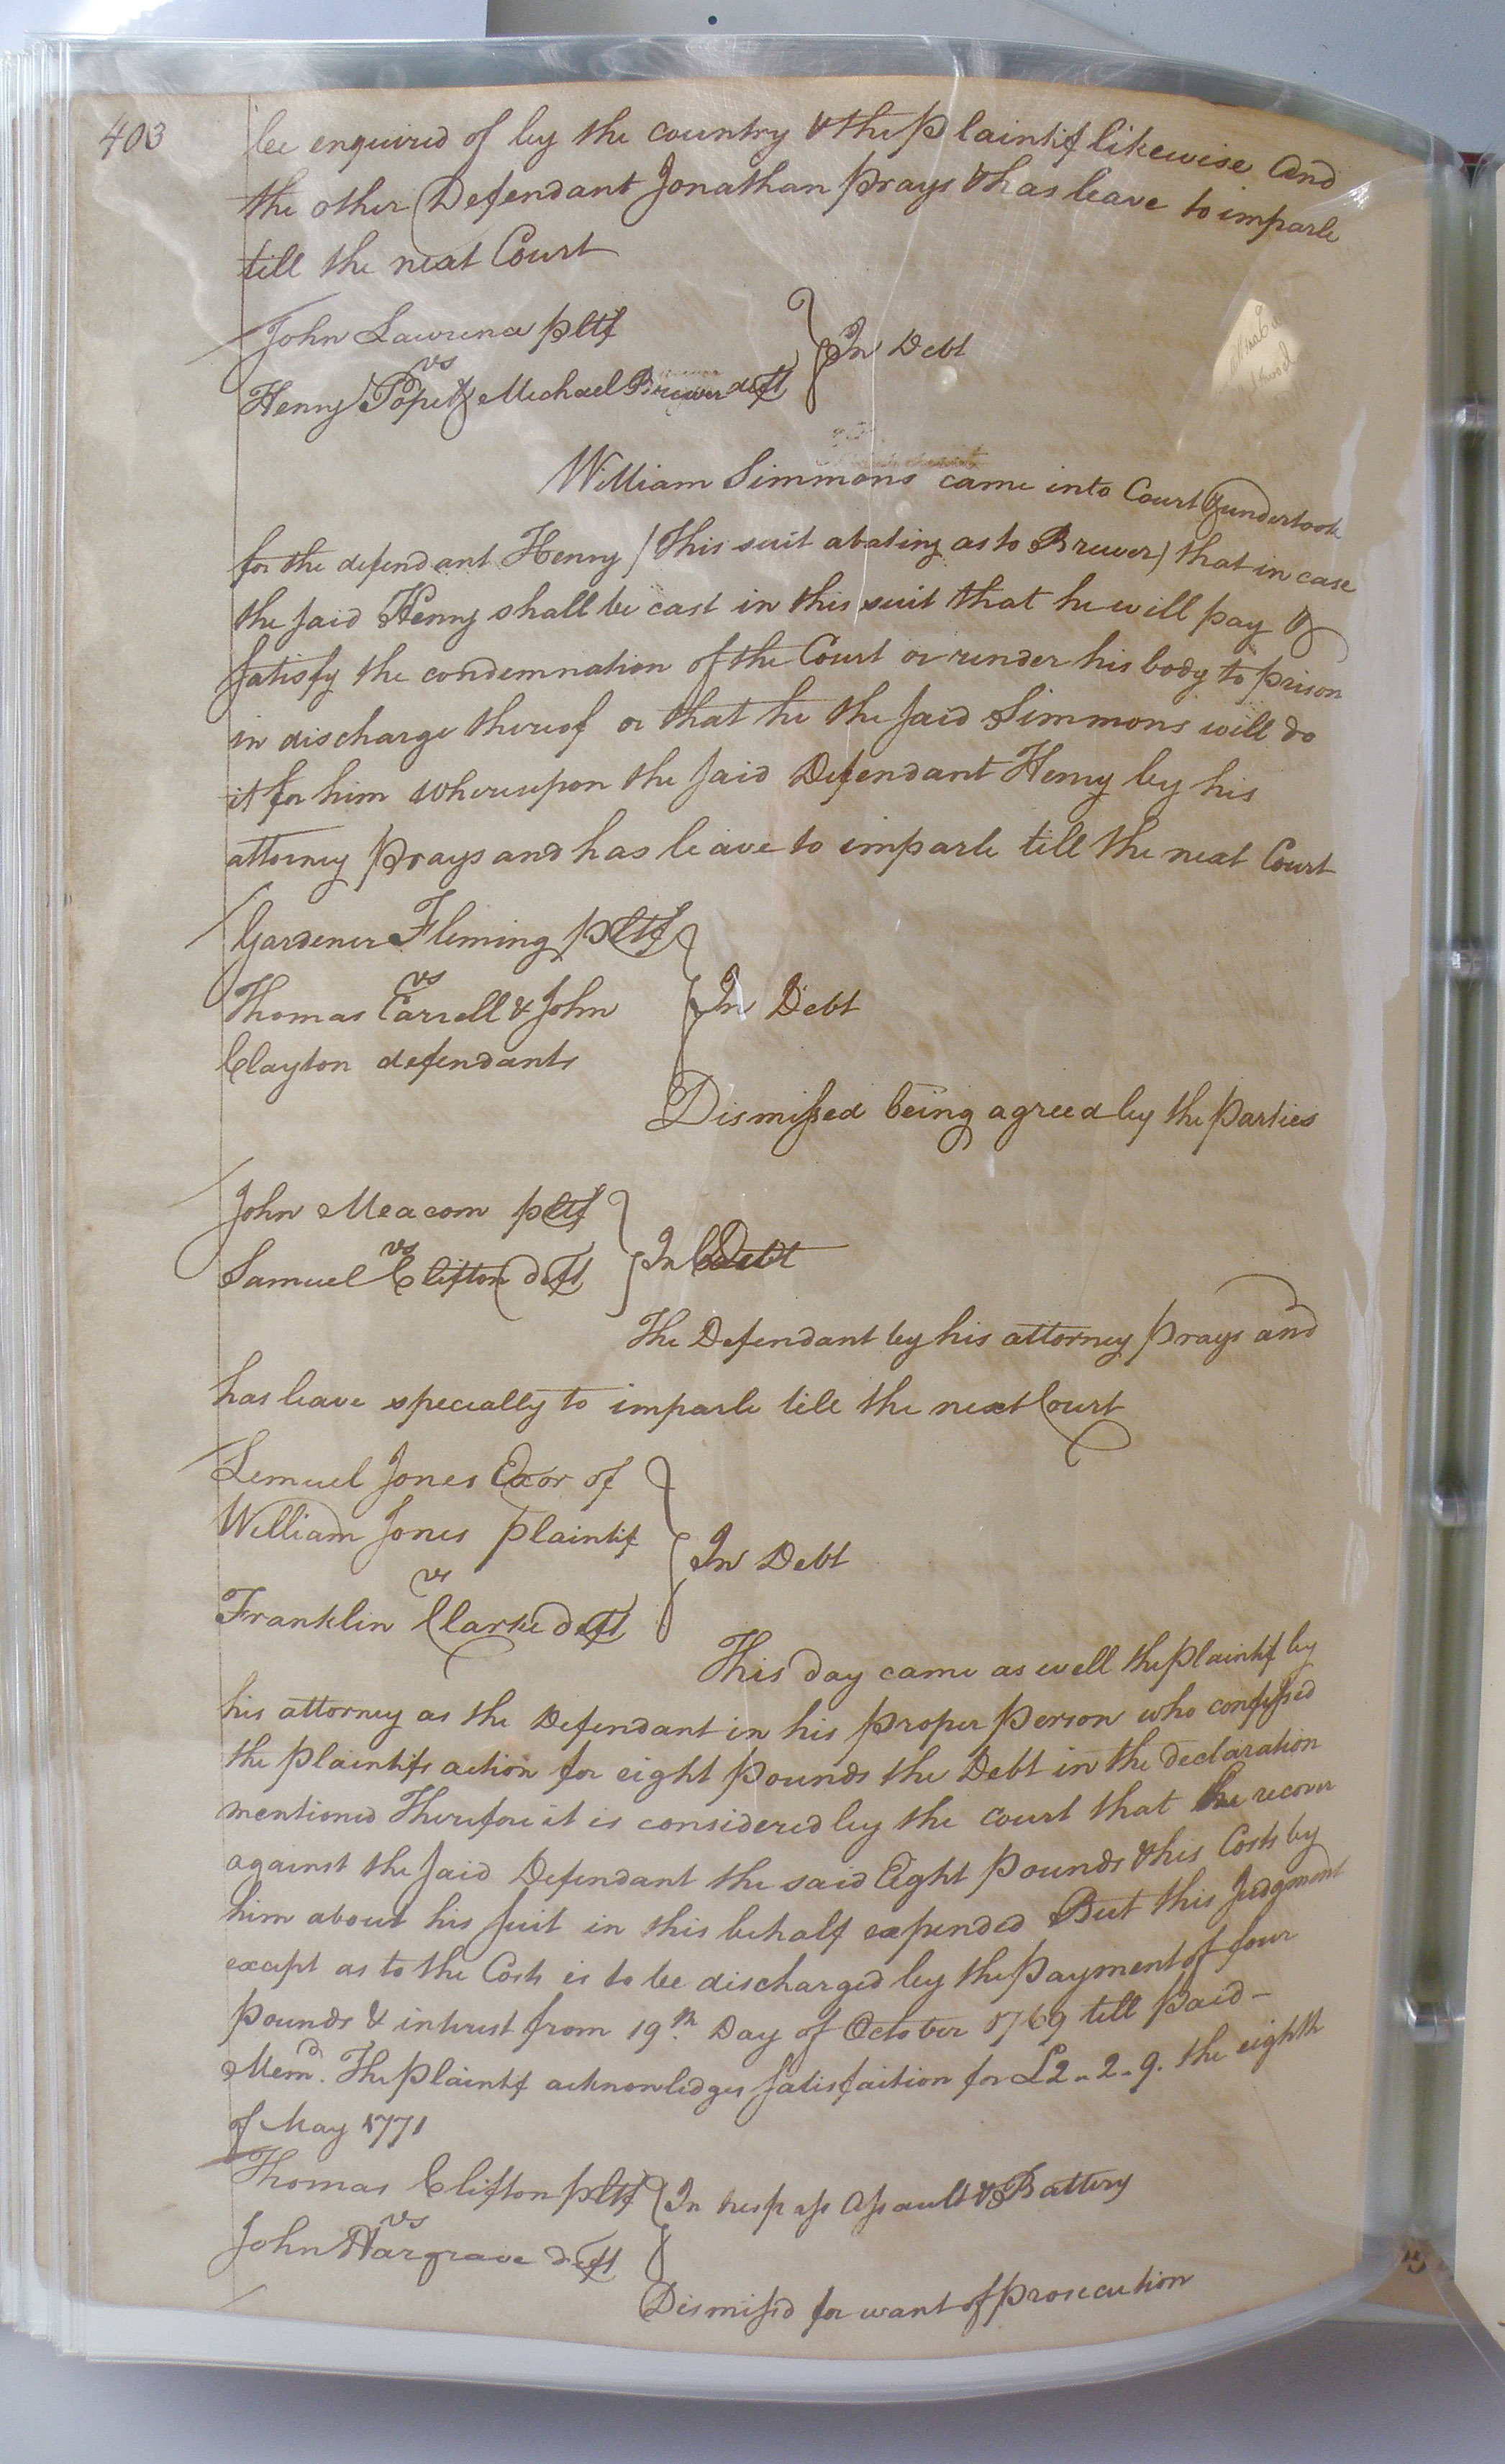 403
be enquired of by the country & the Plaintif likewise And
the other Defendant Jonathan prays & has leave to imparle
till the next Court
John Lawrence pltf
vs
Henry Pope & Michael Brewer deft
In Debt
William Simmons came into Court & undertook
for the defendant Henry (this suit abating as to Brewer) that in case
the said Henry shall be cast in this suit that he will pay &
satisfy the condemnation of the Court or render his body to prison
in discharge thereof or that he the said Simmons will do
it for him whereupon the said Defendant Henry by his
attorney prays and has leave to imparle till the next Court
Gardener Fleming pltf
vs
Thomas Carrell & John
Clayton defendants
In Debt
Dismissed being agreed by the parties
John Meacom pltf
vs
Samuel Clifton deft
In Debt
The Defendant by his attorney prays and
has leave specially to imparle till the next Court
Lemuel Jones Exor of
William Jones plaintif
vs
Franklin Clarke deft
In Debt
This day came as well the plaintif by
his attorney as the Defendant in his proper person who confessed
the plaintifs action for eight pounds the Debt in the declaration
mentioned Therefore it is considered by the court that he recover
against the said Defendant the said Eight pounds & his Costs by
him about his suit in this behalf expended But this Judgment
except as to the Costs is to be discharged by the payment of four
pounds & interest from 19th Day of October 1769 till paid-
Memd. The plaintif acknowledges satisfaction for £2-2-9. the eighth
of May 1771
Thomas Clifton pltf
vs
John Hargrave deft
In trespass Assault & Battery
Dismissd for want of prosecution